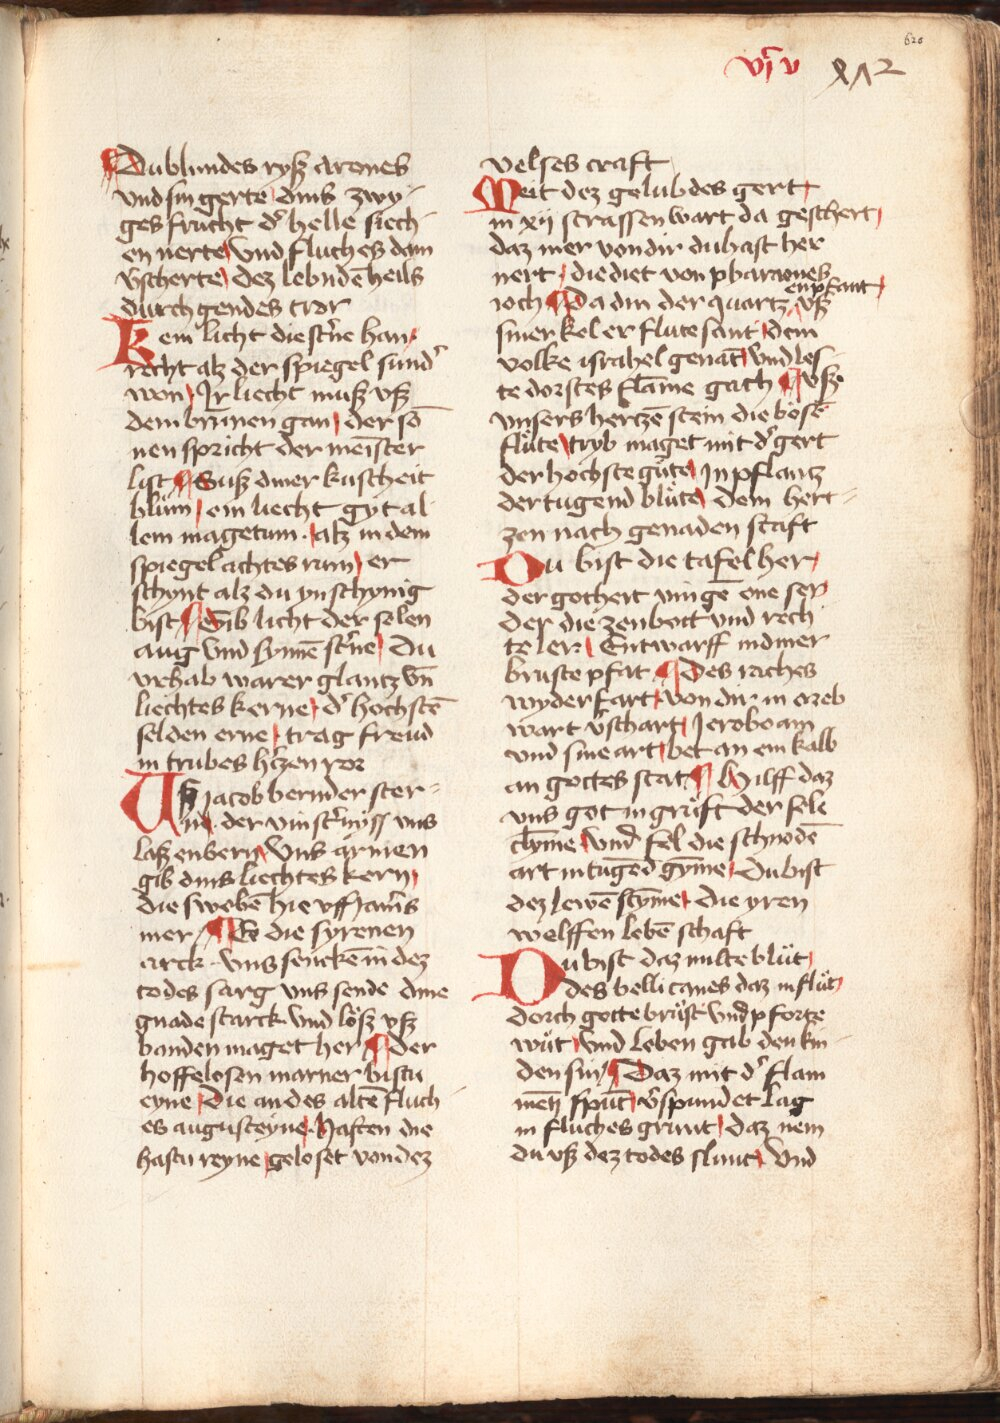 620
vj v 812
Du blundes ryß arones
vnd sin gerte dins zwy
ges frucht d' helle siech
en nerte vnd fluches dam
v'scherte dez lebnde heils
durchgendes tror
Kein licht die st'ne han
recht alz der spiegel sund'
won Ir liecht muß vß
dem brunnen gan der so
nen spricht der meister
list Suß diner kuscheit
blum ein liecht gyt al
lem magetum alz in dem
spiegel achtes rum er
schynt alz du yn schynig
bist Gib licht der selen
aug vnd synnē st'ne Du
vrhab warer glantz vn̄
liechtes kerne d' hochstē
selden erne trag freud
in trubes h'tzen ror
Vß Jacob bernder ster
ne der vinst'nyss vns
laß enbern Vns armen
gib dins liechtes kern
die swebē hie vff jam's
mer Ee die syrenen
arck vns senckē in dez
todes sarg vns sende dine
gnade starck vnd löß vß
banden maget her Der
hoffelosen marner bistu
eyne Die an des altē fluch
es augusteyne hafften die
hastu reyne geloset von dez
velses craft
Meit dez gelubdes gert
in xij strassen wart da geschert
daz mer von dir du hast her
nert die diet von pharaones
enpfant
ioch Da din der quartz vß
siner kel er flute sant dem
volke israhel genāt vnd les
te dorstes flāme gach Vß
vnsers hertzē stein die bösē
flute tryb maget mit d' gert
der hochste güte In pflantz
der tugend blüte dem hert
zen nach genaden scaft
Du bist die tafel her
der gotheit vingē one ser
der die zen bott vnd rech
te ler Entwarff in diner
bruste pfat Des raches
wyderfart von dir in oreb
wart v'schart Jeroboam
vnd sine art bet an ein kalb
an gottes stat Hilff daz
vns got in grüft der sele
chyme vnd fel die schnodē
art in tugēd gyme Du bist
dez lewē stymē die yren
welffen lebē schaft
Du bist daz milte blüt
des bellicanes daz in flüt
dorch gotte brüst vnd pforte
wüt vnd leben gab den kin
den sin Daz mit d' flam
men sput v'spundet lag
in fluches grunt daz nem
du vß dez todes slunt Vnd